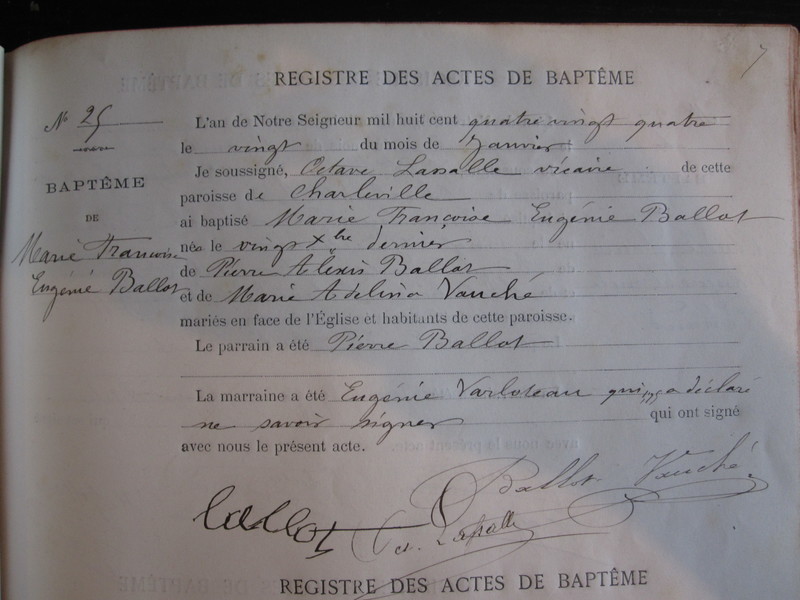 7
REGISTRE DES ACTES DE BAPTÊME
N° 25
BAPTÊME
DE
Marie Françoise
Eugénie Ballot
L'an de Notre Seigneur mil huit cent quatre vingt quatre
le vingt du mois de Janvier
Je soussigné, Octave Lassalle vicaire de cette
paroisse de Charleville
ai baptisé Marie Françoise Eugénie Ballot
née le vingt Xbre dernier
de Pierre Alexis Ballot
et de Marie Adelina Vauché
mariés en face de l'Église et habitants de cette paroisse.
Le parrain a été Pierre Ballot
La marraine a été Eugénie Varloteau qui a déclaré
ne savoir signer qui ont signé
avec nous le présent acte.
Ballot Vauché
Ballot
Lassalle
REGISTRE DES ACTES DE BAPTÊME